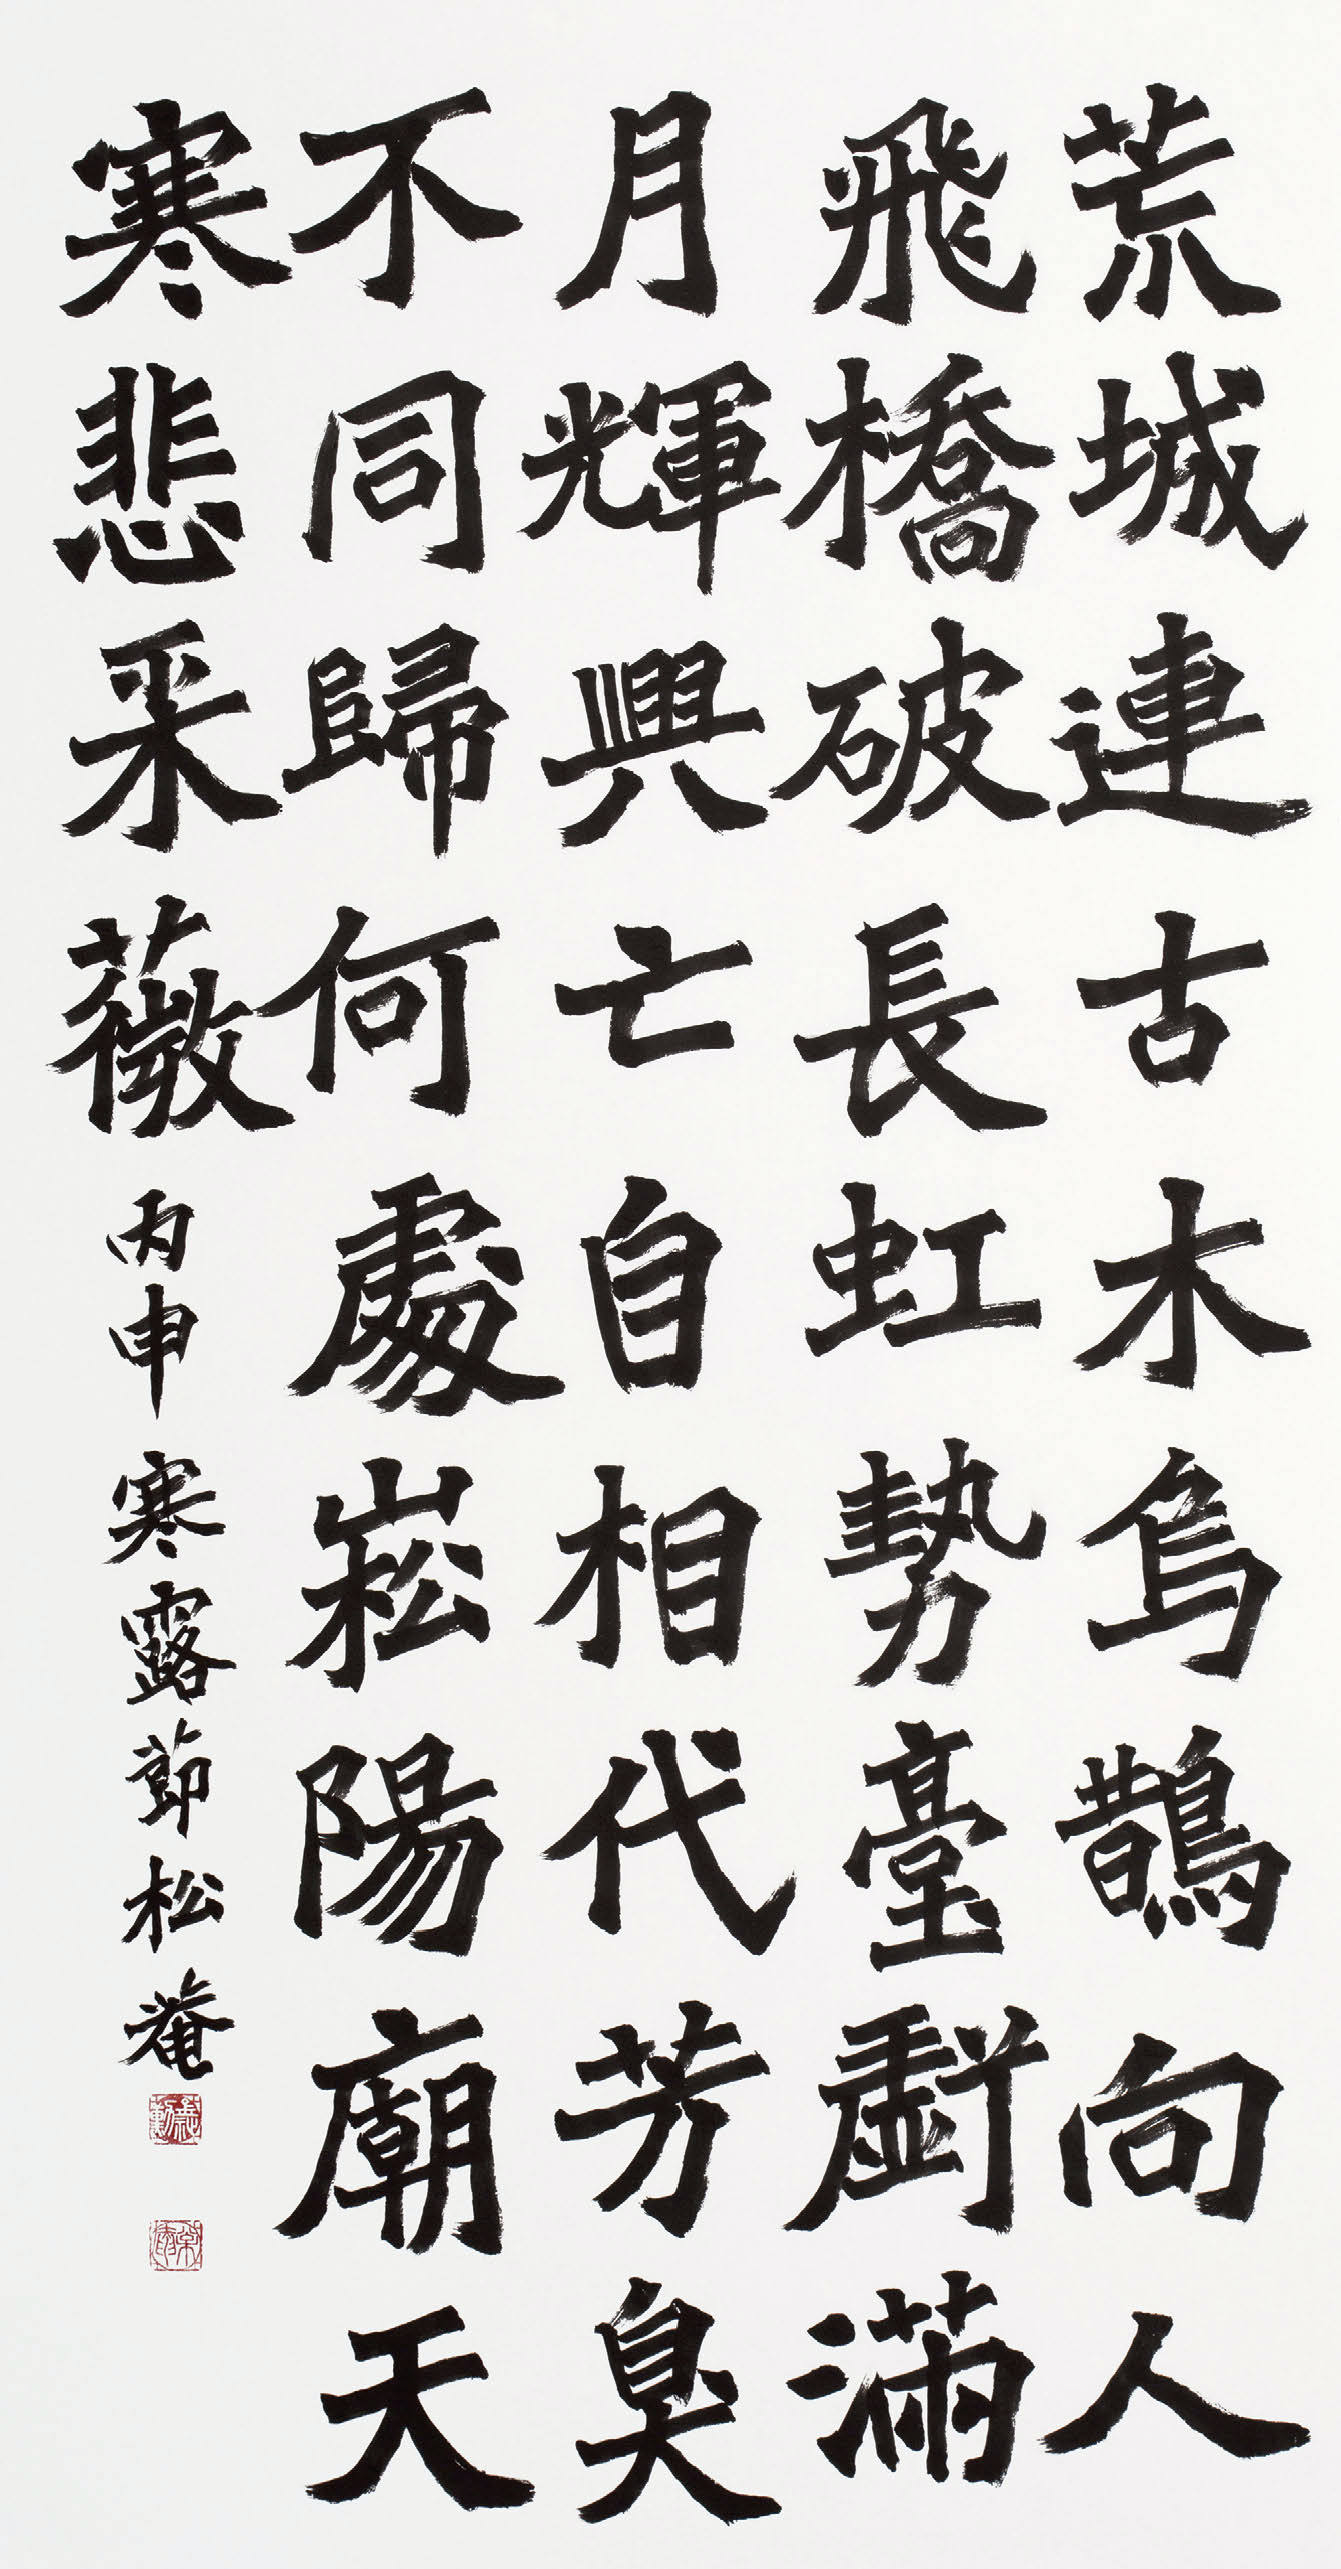 荒城連古木烏鵲向人
飛橋破長虹勢臺劇滿
月輝興亡自相代芳臭
不同歸何處崧陽廟天
寒悲采薇丙申寒露節松菴